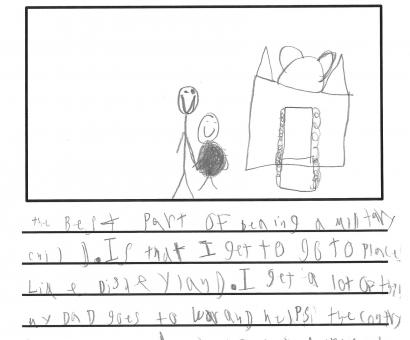 the Best Part OF Beaing a military
chilD.Is that I get to go to Place
Like DisneyLand.I get a lot OF thi
my DaD goes to war and helPs the contry